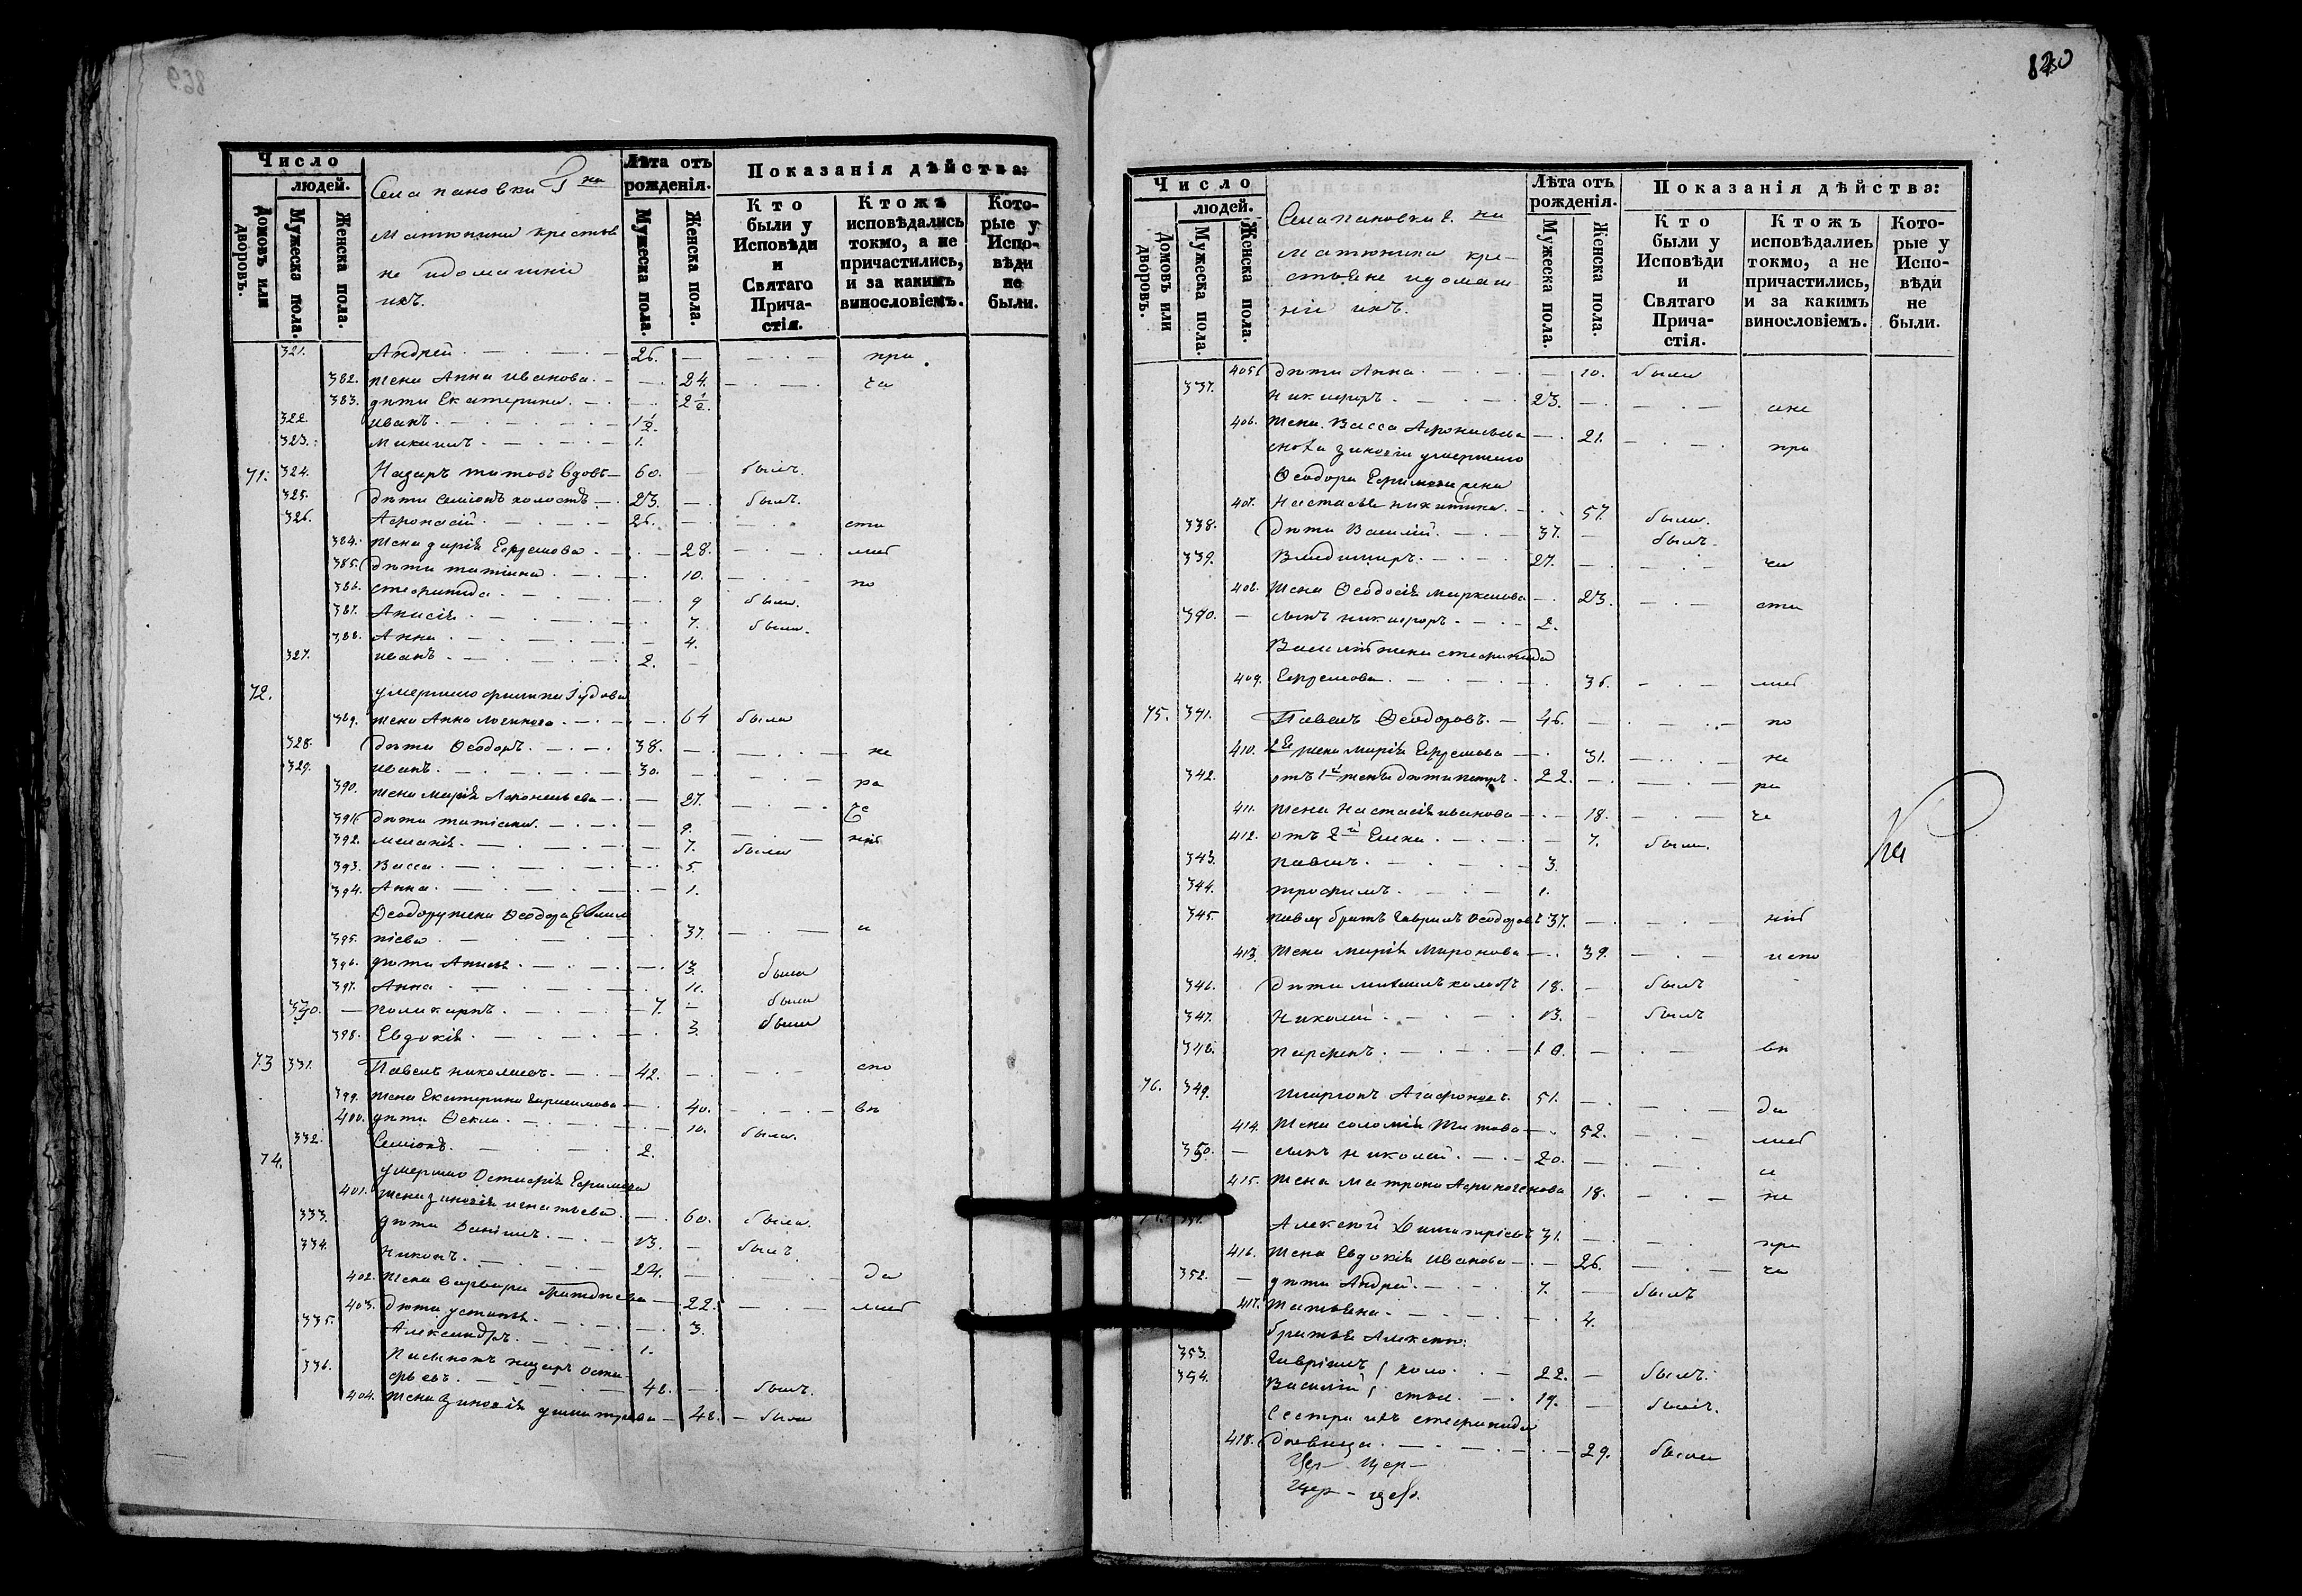 869
Число
людей.
Домовъ или дворовъ.
Мужеска пола.
Женска пола.
Села пановки Г на
Матюнина крестья
не идомашнiи
ихъ.
Лѣта отъ рожденія.
Мужеска пола.
Женска пола.
Показанія дѣйства:
Кто были у Исповѣди и Святаго Причастія.
Ктожъ исповѣдались токмо, а не причастились, и за какимъ винословіемъ.
Которые у Исповѣди не были.
321. Андрей 26. при
382. жена Анна иванова 24. ча
383. дѣти Екатерина 2½
322. иванъ 1½
323. михаилъ 1.
71. 324. Назаръ титовъ вдовъ 60. былъ.
325. дѣти Семiонъ холостъ 23. былъ.
326. Афонасiй 26. сти
384. жена дарiя Ефремова 28. либ
385. дѣти татiана 10. по
386. стефанида 9 была.
387. Анисiя 7. была.
388. Анна 4.
327. иванъ 2.
72. умершаго
389. жена Анна 64 была
328. дѣти Ѳеодоръ 38. не
329. иванъ 30. ра
390. жена марiя Афонасьева 27. че
391. дѣти татiана 9. нiю
392. меланiя 7. была
393. Васса 5.
394. Анна 1.
Ѳеодору жена Ѳеодора Евлам
395. пiева 37. и
396. дѣти Анисiя 13. была
397. Анна 11. была
330. поликарпъ 7. были
398. Евдокiя 3.
73 331. Павелъ николаевъ 42. спо
399. жена Екатерина Герасимова 40. вѣ
400. дѣти Ѳекла 10. была.
332. Семiонъ 2.
74. умершаго Остафiя Ефимова
401. жена зиновiя игнатьева 60. была
333. дѣти Данiилъ 13. былъ
334. никонъ 24. да
402. жена варвара 22. либ
403. дѣти устинья 3.
335. Александръ 1.
336. Пасынокъ назаръ Оста
фьевъ 48. былъ.
404. жена зиновiя димитрiева 48. была
870
Число
людей.
Домовъ или дворовъ.
Мужеска пола.
Женска пола.
Села пановки г. на
матюнина кре-
стьяне идомаш
нiи ихъ.
Лѣта отъ рожденія.
Мужеска пола.
Женска пола.
Показанія дѣйства:
Кто были у Исповѣди и Святаго Причастія.
Ктожъ исповѣдались токмо, а не причастились, и за какимъ винословіемъ.
Которые у Исповѣди не были.
405. дѣти Анна 10. была
337. никифоръ 23. ине
406. жена Васса Афонасьева 21. при
снова зиновiи умершаго
Ѳеодора Ефимова жена
407. Настасья никитина 57. была.
338. дѣти Василiй 37. былъ
339. Владимиръ 27. ча
408. жена Ѳеодосiя маркелова 23. сти
340. сынъ никифоръ 2.
Василiя жена стефанида
409. Ефремова 36. либ
75. 341. Павелъ Ѳеодоровъ 46. по
410. 2я жена марiя Ефремова 31. не
342. отъ 1й жены дѣти петръ 22. ра
411. жена настасiя иванова 18. че
412. отъ 2й Елена 7. была.
343. павелъ 3.
344. трофимъ 1.
345. павлу братъ гаврилъ Ѳеодоровъ 37. нiю
413. жена марiя Миронова 39. испо
346. дѣти михаилъ холостъ 18. былъ
347. Николай 13. былъ
348. парфенъ 10. вѣ
На
76. 349. иларiонъ Агафоновъ 51. да
414. жена соломiя Титова 52. либ
350. сынъ николай 20. и
415. жена матрона Афиногенова 18. не
Алексѣй Димитрiевъ 31. при
416. жена Евдокiя иванова 26. ча
352. дѣти Андрей 7. былъ
417. татьяна 4.
братья Алексѣю:
353. гаврiилъ холо 22. былъ.
354. Василiй стые 19. былъ.
Сестра ихъ стефанида
418. дѣвица 29. была